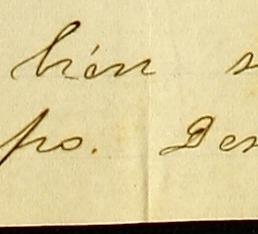 bién s
po. Des